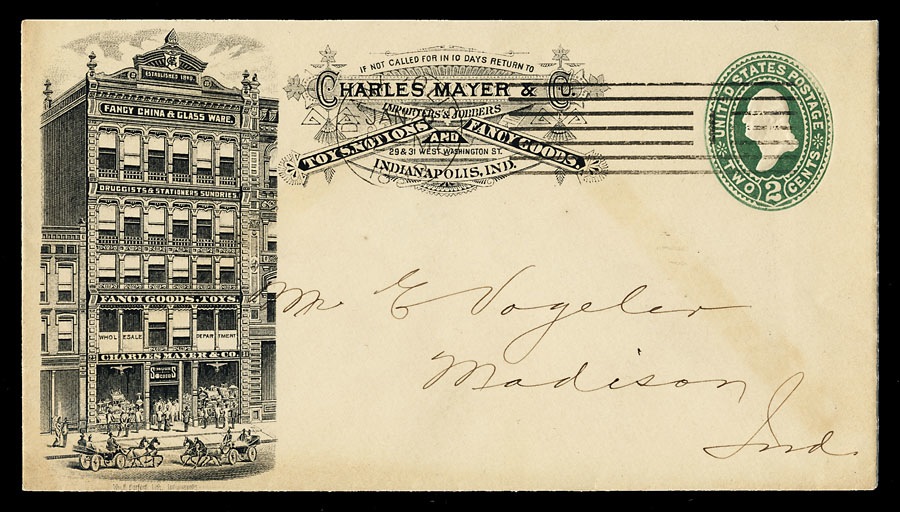 ESTABLISHED 1840.
FANCY CHINA & GLASS WARE.
DRUGGISTS & STATIONERS SUNDRIES
FANCY GOODS, TOYS.
WHOLESALE DEPARTMENT
CHARLES MAYER & CO.
IF NOT CALLED FOR IN 10 DAYS RETURN TO
CHARLES MAYER & CO.
IMPORTERS & JOBBERS
TOYS, NOTIONS AND FANCY GOODS.
29 & 31 WEST WASHINGTON ST.
INDIANAPOLIS, IND.
JAN
UNITED STATES POSTAGE.
TWO 2 CENTS
Mr E Vogeler
Madison
Ind.